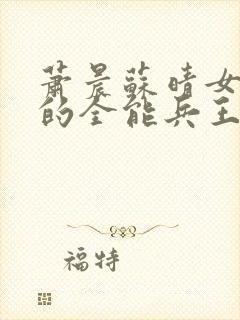 蕭晨蘇晴女
的全能兵王
福特